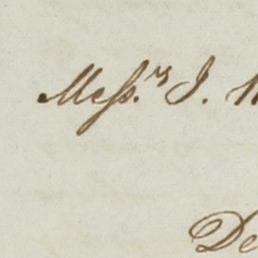 Messrs. J.
De